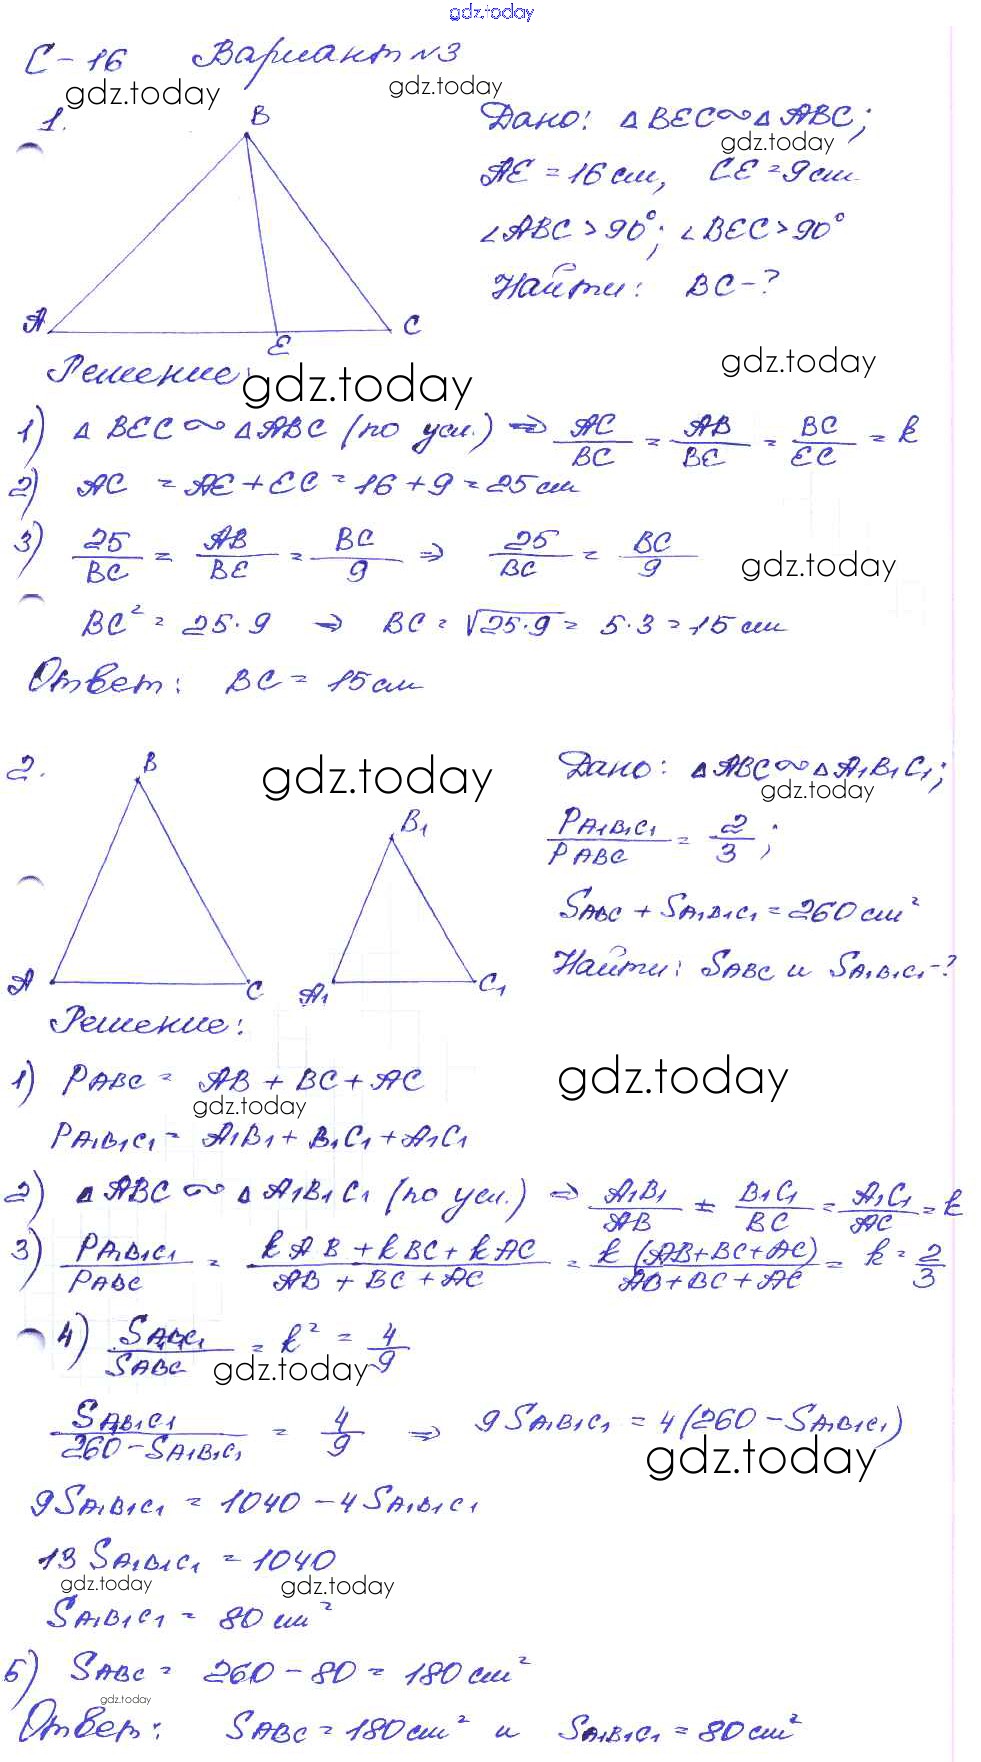 gdz.today
С-16 Вариант №3
gdz.today gdz.today
1.
B
A
E
C
Дано: △BEC ∾ △ABC;
gdz.today
AE = 16 см, CE = 9 см
∠ABC > 90°; ∠BEC > 90°
Найти: BC - ?
gdz.today
Решение:
gdz.today
1) △BEC ∾ △ABC (по усл.) ⇒ AC/BC = AB/BE = BC/EC = k
2) AC = AE + EC = 16 + 9 = 25 см
3) 25/BC = AB/BE = BC/9 ⇒ 25/BC = BC/9
gdz.today
BC² = 25·9 ⇒ BC = √25·9 = 5·3 = 15 см
Ответ: BC = 15 см
2.
B
A
C
B₁
A₁
C₁
gdz.today
Дано: △ABC ∾ △A₁B₁C₁;
gdz.today
PA₁B₁C₁/PABC = 2/3;
SABC + SA₁B₁C₁ = 260 см²
Найти: SABC и SA₁B₁C₁ - ?
Решение:
1) PABC = AB + BC + AC
gdz.today
gdz.today
PA₁B₁C₁ = A₁B₁ + B₁C₁ + A₁C₁
2) △ABC ∾ △A₁B₁C₁ (по усл.) ⇒ A₁B₁/AB = B₁C₁/BC = A₁C₁/AC = k
3) PA₁B₁C₁/PABC = kAB + kBC + kAC/AB + BC + AC = k(AB+BC+AC)/AB+BC+AC = k = 2/3
4) SA₁B₁C₁/SABC = k² = 4/9
gdz.today
SA₁B₁C₁/260 - SA₁B₁C₁ = 4/9 ⇒ 9SA₁B₁C₁ = 4(260 - SA₁B₁C₁)
gdz.today
9SA₁B₁C₁ = 1040 - 4SA₁B₁C₁
13SA₁B₁C₁ = 1040
gdz.today gdz.today
SA₁B₁C₁ = 80 см²
5) SABC = 260 - 80 = 180 см²
gdz.today
Ответ: SABC = 180 см² и SA₁B₁C₁ = 80 см²